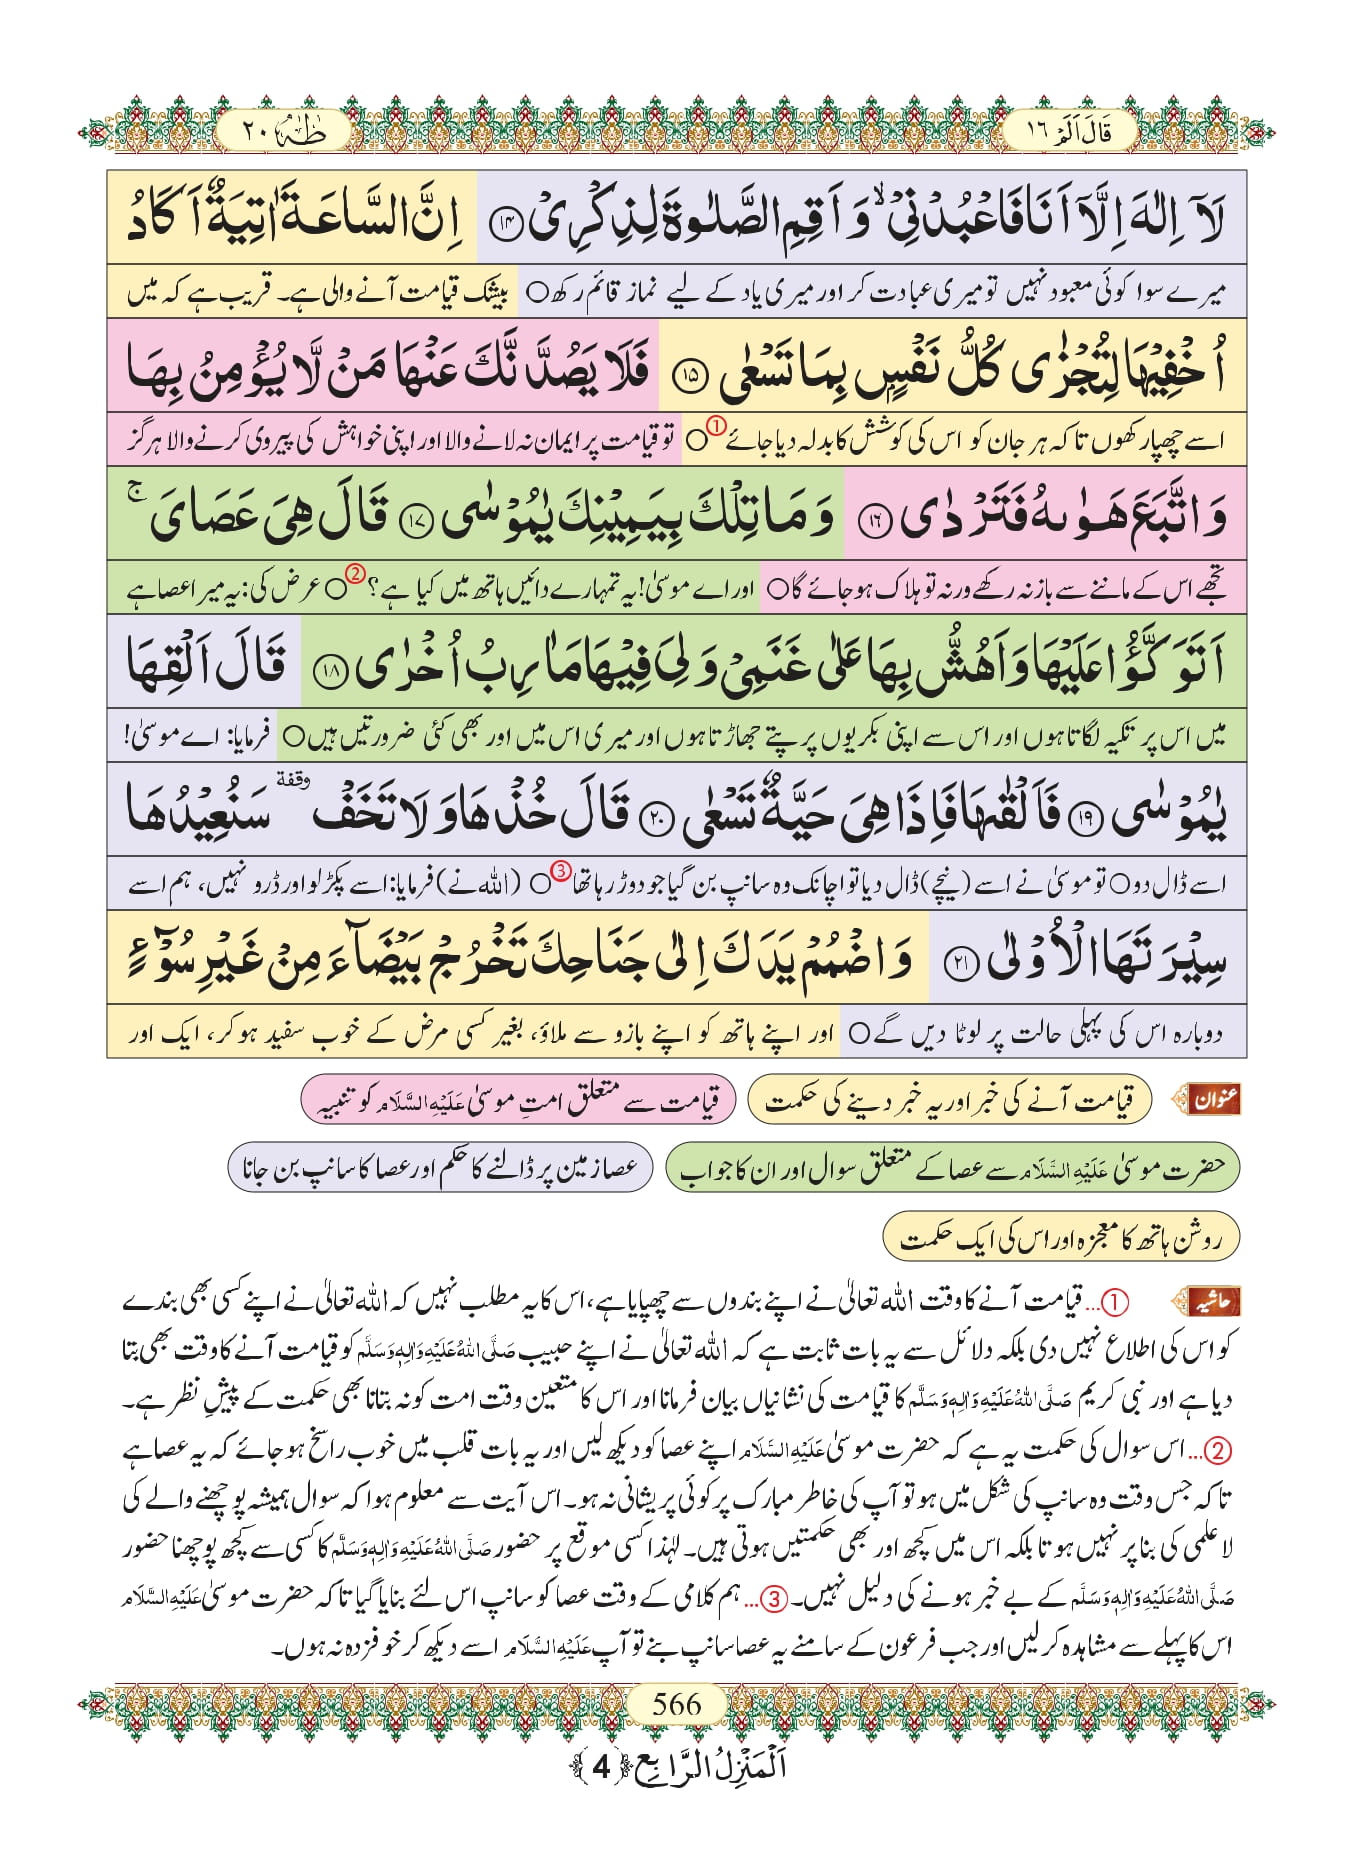 قَالَ اَلَمْ ١٦
طٰهٰ ٢٠
لَاۤ اِلٰهَ اِلَّاۤ اَنَا فَاعْبُدْنِیْۙ وَ اَقِمِ الصَّلٰوةَ لِذِكْرِیْ ﴿۱۴﴾ اِنَّ السَّاعَةَ اٰتِیَةٌ اَكَادُ
میرے سوا کوئی معبود نہیں تو میری عبادت کر اور میری یاد کے لیے نماز قائم رکھ○ بیشک قیامت آنے والی ہے۔ قریب ہے کہ میں
اُخْفِیْهَا لِتُجْزٰى كُلُّ نَفْسٍۭ بِمَا تَسْعٰى ﴿۱۵﴾ فَلَا یَصُدَّنَّكَ عَنْهَا مَنْ لَّا یُؤْمِنُ بِهَا
اسے چھپا رکھوں تاکہ ہر جان کو اس کی کوشش کا بدلہ دیا جائے①○ تو قیامت پر ایمان نہ لانے والا اور اپنی خواہش کی پیروی کرنے والا ہرگز
وَ اتَّبَعَ هَوٰىهُ فَتَرْدٰى ﴿۱۶﴾ وَ مَا تِلْكَ بِیَمِیْنِكَ یٰمُوْسٰى ﴿۱۷﴾ قَالَ هِیَ عَصَایَۚ
تجھے اس کے ماننے سے باز نہ رکھے ورنہ تو ہلاک ہو جائے گا○ اور اے موسیٰ! یہ تمہارے دائیں ہاتھ میں کیا ہے؟②○ عرض کی: یہ میرا عصا ہے
اَتَوَكَّؤُا عَلَیْهَا وَ اَهُشُّ بِهَا عَلٰى غَنَمِیْ وَ لِیَ فِیْهَا مَاٰرِبُ اُخْرٰى ﴿۱۸﴾ قَالَ اَلْقِهَا
میں اس پر تکیہ لگاتا ہوں اور اس سے اپنی بکریوں پر پتے جھاڑتا ہوں اور میری اس میں اور بھی کئی ضرورتیں ہیں○ فرمایا: اے موسیٰ!
یٰمُوْسٰى ﴿۱۹﴾ فَاَلْقٰىهَا فَاِذَا هِیَ حَیَّةٌ تَسْعٰى ﴿۲۰﴾ قَالَ خُذْهَا وَ لَا تَخَفْ وقفة سَنُعِیْدُهَا
اسے ڈال دو○ تو موسیٰ نے اسے (نیچے) ڈال دیا تو اچانک وہ سانپ بن گیا جو دوڑ رہا تھا③○ (اللہ نے) فرمایا: اسے پکڑ لو اور ڈرو نہیں، ہم اسے
سِیْرَتَهَا الْاُوْلٰى ﴿۲۱﴾ وَ اضْمُمْ یَدَكَ اِلٰى جَنَاحِكَ تَخْرُجْ بَیْضَآءَ مِنْ غَیْرِ سُوْٓءٍ
دوبارہ اس کی پہلی حالت پر لوٹا دیں گے○ اور اپنے ہاتھ کو اپنے بازو سے ملاؤ، بغیر کسی مرض کے خوب سفید ہو کر، ایک اور
عنوان قیامت آنے کی خبر اور یہ خبر دینے کی حکمت قیامت سے متعلق امتِ موسیٰ عَلَیْهِ السَّلَام کو تنبیہ
حضرت موسیٰ عَلَیْهِ السَّلَام سے عصا کے متعلق سوال اور ان کا جواب عصا زمین پر ڈالنے کا حکم اور عصا کا سانپ بن جانا
روشن ہاتھ کا معجزہ اور اس کی ایک حکمت
حاشیہ ①... قیامت آنے کا وقت اللہ تعالیٰ نے اپنے بندوں سے چھپایا ہے، اس کا یہ مطلب نہیں کہ اللہ تعالیٰ نے اپنے کسی بھی بندے
کو اس کی اطلاع نہیں دی بلکہ دلائل سے یہ بات ثابت ہے کہ اللہ تعالیٰ نے اپنے حبیب صَلَّی اللهُ عَلَیْهِ وَاٰلِهٖ وَسَلَّم کو قیامت آنے کا وقت بھی بتا
دیا ہے اور نبی کریم صَلَّی اللهُ عَلَیْهِ وَاٰلِهٖ وَسَلَّم کا قیامت کی نشانیاں بیان فرمانا اور اس کا متعین وقت امت کو نہ بتانا بھی حکمت کے پیشِ نظر ہے۔
②... اس سوال کی حکمت یہ ہے کہ حضرت موسیٰ عَلَیْهِ السَّلَام اپنے عصا کو دیکھ لیں اور یہ بات قلب میں خوب راسخ ہو جائے کہ یہ عصا ہے
تاکہ جس وقت وہ سانپ کی شکل میں ہو تو آپ کی خاطر مبارک پر کوئی پریشانی نہ ہو۔ اس آیت سے معلوم ہوا کہ سوال ہمیشہ پوچھنے والے کی
لاعلمی کی بنا پر نہیں ہوتا بلکہ اس میں کچھ اور بھی حکمتیں ہوتی ہیں۔ لہٰذا کسی موقع پر حضور صَلَّی اللهُ عَلَیْهِ وَاٰلِهٖ وَسَلَّم کا کسی سے کچھ پوچھنا حضور
صَلَّی اللهُ عَلَیْهِ وَاٰلِهٖ وَسَلَّم کے بے خبر ہونے کی دلیل نہیں۔ ③... ہم کلامی کے وقت عصا کو سانپ اس لئے بنایا گیا تاکہ حضرت موسیٰ عَلَیْهِ السَّلَام
اس کا پہلے سے مشاہدہ کر لیں اور جب فرعون کے سامنے یہ عصا سانپ بنے تو آپ عَلَیْهِ السَّلَام اسے دیکھ کر خوفزدہ نہ ہوں۔
566
اَلْمَنْزِلُ الرَّابِع ﴿4﴾